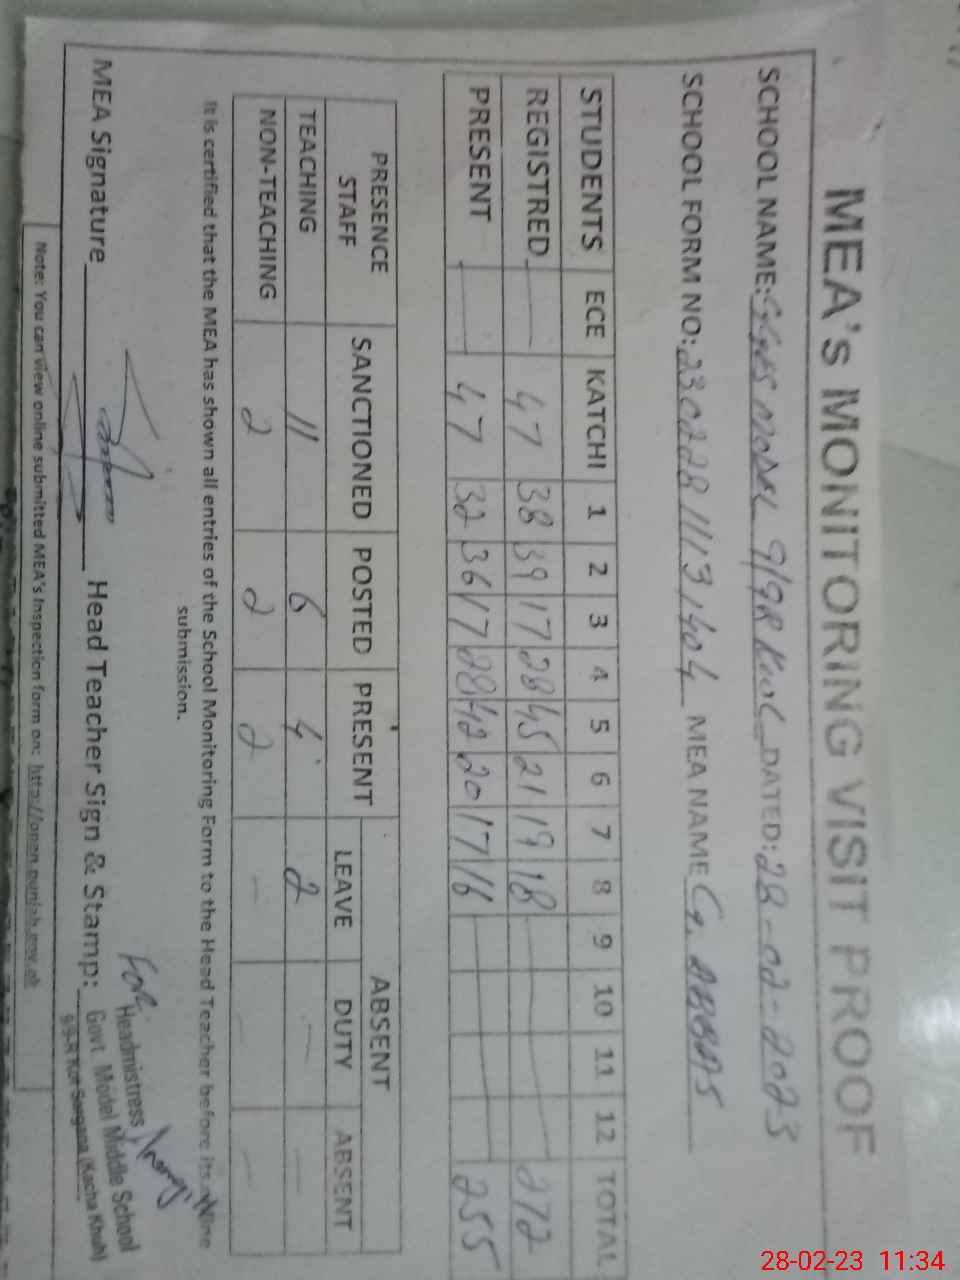 MEA's MONITORING VISIT PROOF
SCHOOL NAME: MODEL 9/9R DATED: 28-02-2023
SCHOOL FORM NO: 23022811131404 MEA NAME G. ABBAS
STUDENTS ECE KATCHI 1 2 3 4 5 6 7 8 9 10 11 12 TOTAL
REGISTRED — 47 38 39 17 28 45 21 19 18 — 272
PRESENT — 47 32 36 17 28 42 20 17 16 — 255
PRESENCE STAFF SANCTIONED POSTED PRESENT ABSENT
LEAVE DUTY ABSENT
TEACHING 11 6 4 2 — —
NON-TEACHING 2 2 2 — — —
It is certified that the MEA has shown all entries of the School Monitoring Form to the Head Teacher before its online
submission.
MEA Signature Head Teacher Sign & Stamp:
For Headmistress
Govt. Model Middle School
9 9-R Kot Sargana (Kacha Khuh)
Note: You can view online submitted MEA's inspection form on: http://open.punjab.gov.pk
28-02-23 11:34